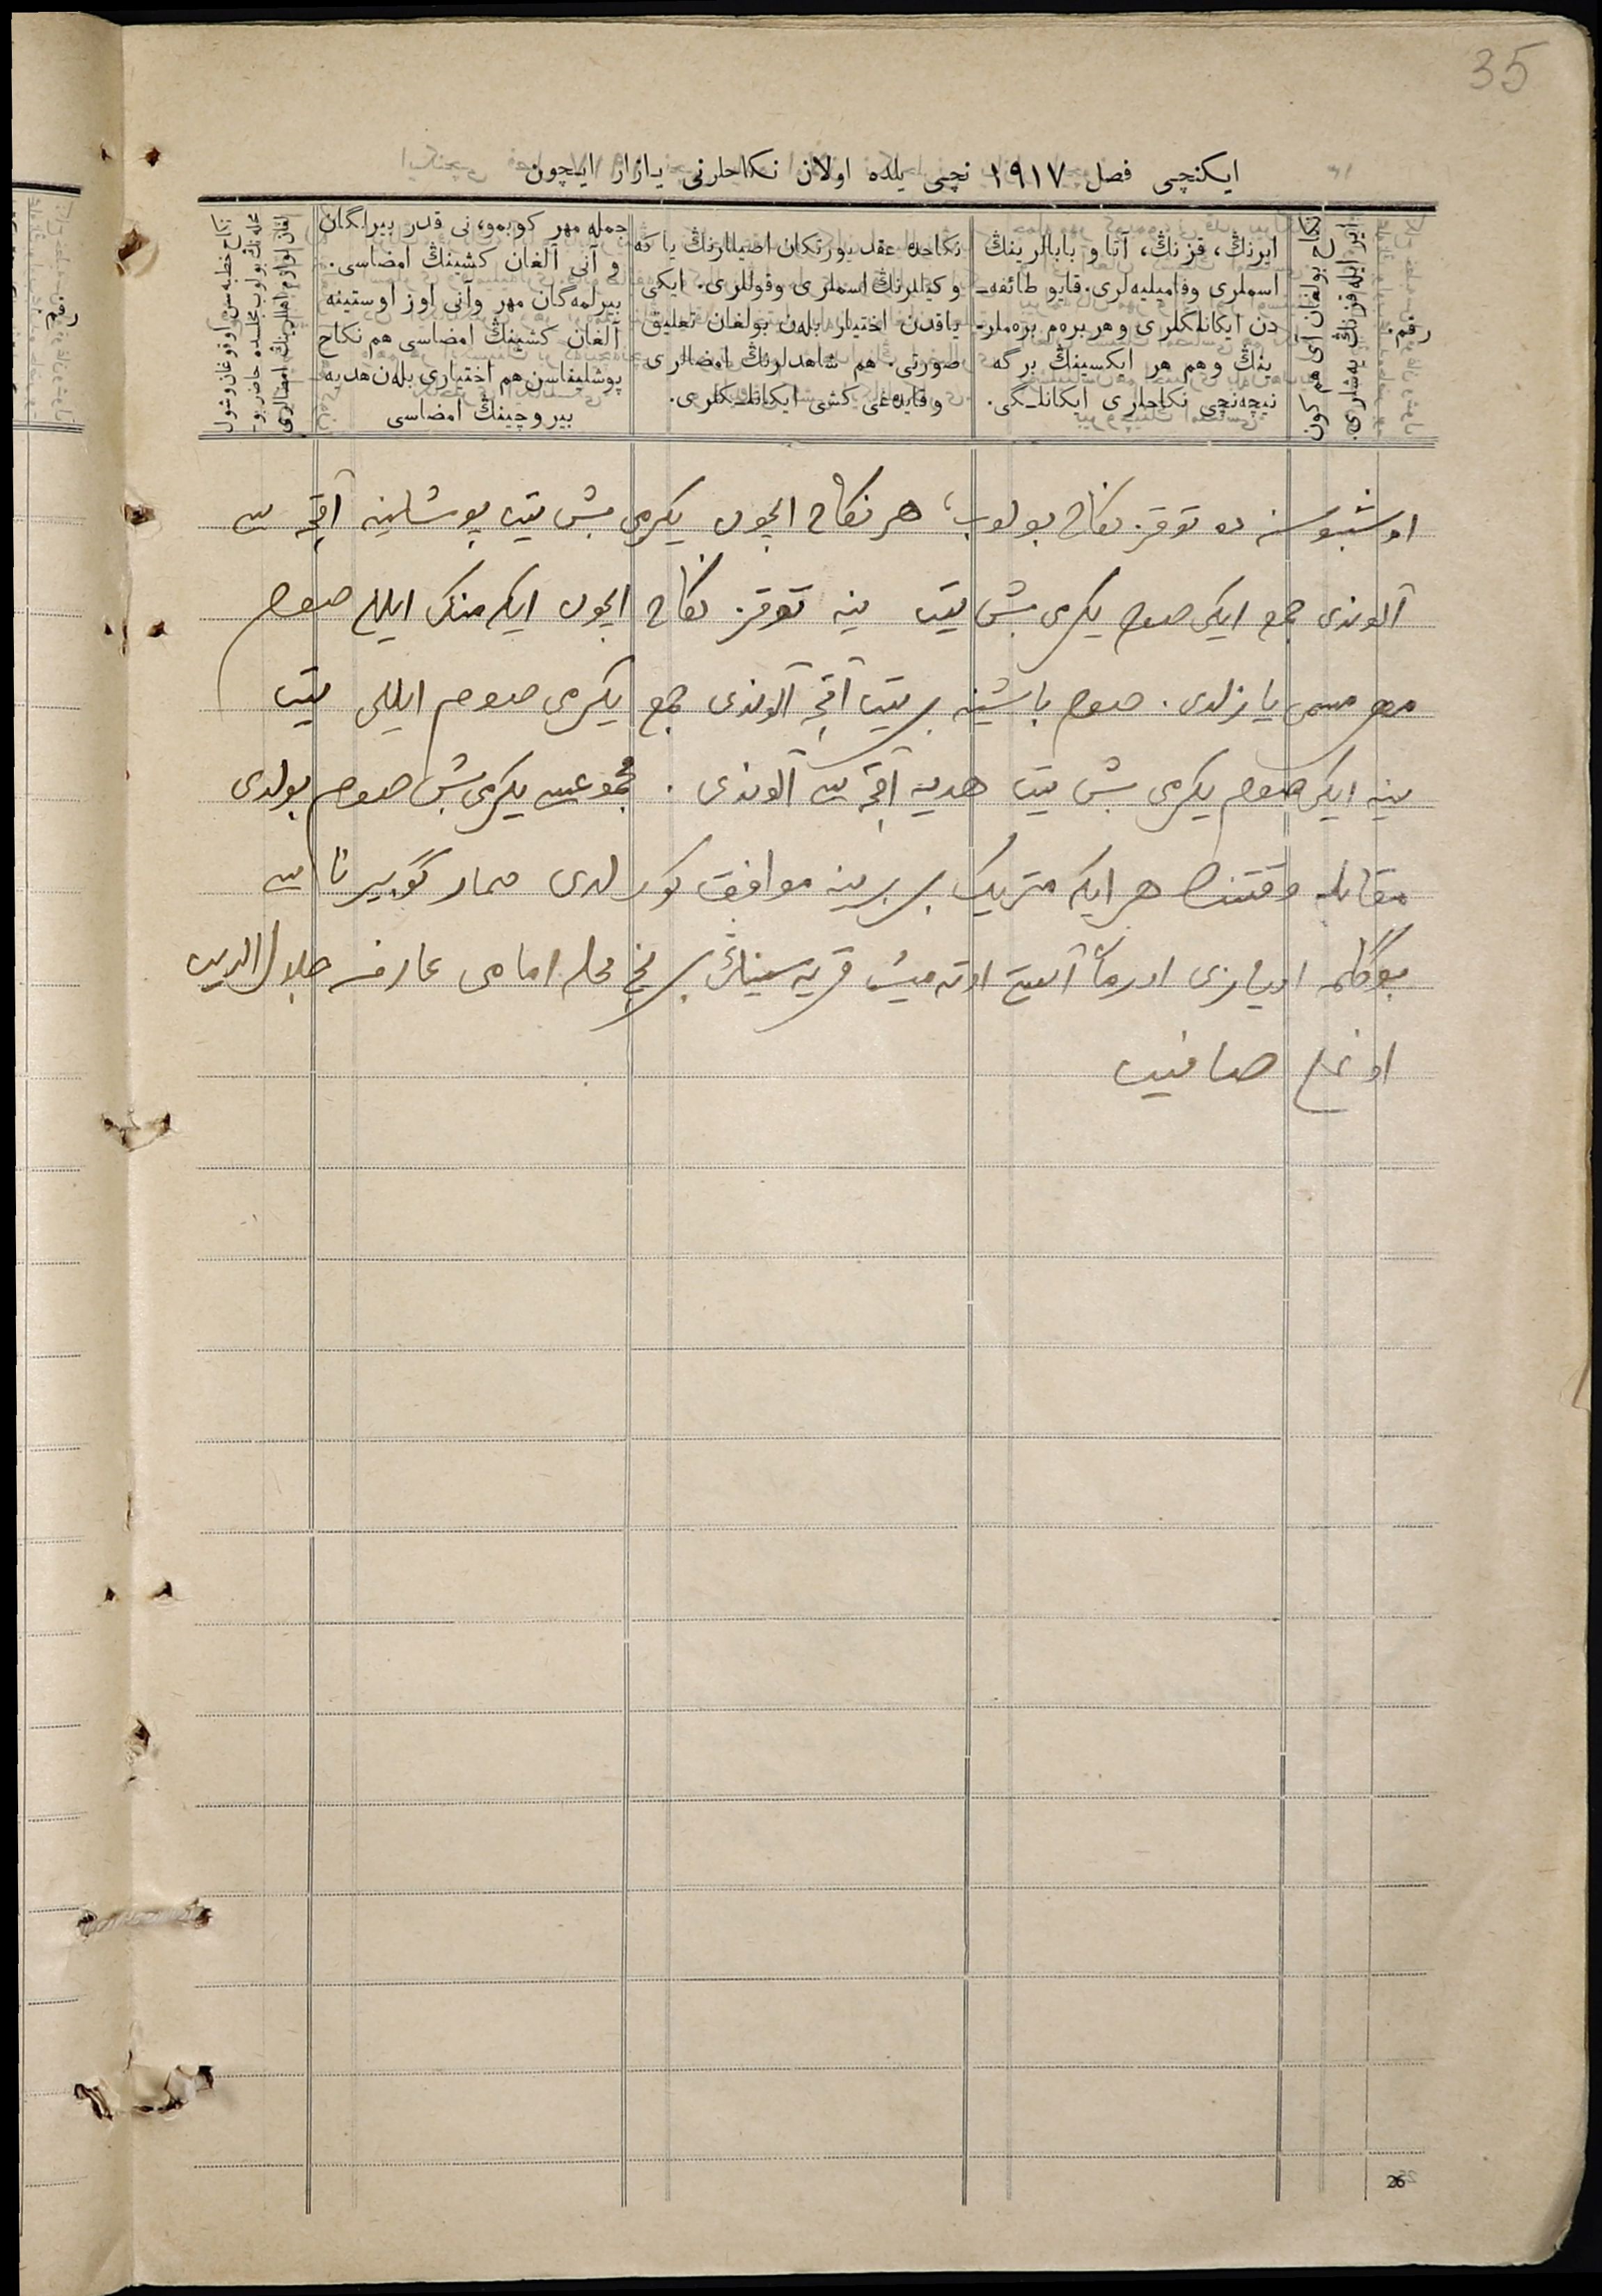 35
ایکنچی فصل ۱۹۱۷ نچی یلده اولان نکاحلرنی یازار ایچون
رقم.
نکاح بولغان آی هم کون
ایر ایله قزنڭ یه‌شلری.
ایرنڭ، قزنڭ، آتا و بابالرینڭ
اسملری وفامیلیه‌لری. قایو طائفه‌ـ
دن ایکانلکلری و هر بره‌م بره‌ملرـ
ینڭ و هم هر ایکسینڭ برگه
نیچه‌نچی نکاحلری ایکانلـگی.
نکاحده عقد یورتکان اصیللرنڭ یا که
و کیللرنڭ اسملری وقوللری. ایکی
یاقدن اختیار بله‌ن بولغان تعلیق
صورتی. هم شاهدلرنڭ امضالری
وقایدغی کشی ایکانلـکلری.
جمله مهر کوبمو، نی قدر بیرلگان
و آنی آلغان کشینڭ امضاسی.
بیرلمه‌گان مهر وآنی اوز اوستینه
آلغان کشینڭ امضاسی هم نکاح
پوشلیناسن هم اختیاری بله‌ن هدیه
بیروچینڭ امضاسی
نکاح خطبه‌سن اوقوغان وشول
محله‌نڭ بولوب مجلسده حاضر بوـ
لغان لوازم اهللرینڭ امضالری
اوشبو سنه ده توقز نکاح بولوب، هر نکاح ایچون یکرمی بش تیت پوشلینه آقچه سی
آلوندی جمع ایکی صوم یکرمی بش تیت ینه توقز نکاح ایچون ایکی منک ایللی صوم
مهر مسمی یازلدی. صوم باشینه بر تیت آقچه آلوندی جمع یکرمی صوم ایللی تیت
ینه ایکی صوم یکرمی بش تیت هدیه آقچه سی آلوندی. مجموعسی یکرمی بش صوم بولدی
مقابله وقتنده هر ایکی متریک بر برینه موافق کورلدی صمار گوبیرناسی
بوگلمه اویازی آلتی اوته‌میش قریه سینڭ برنچی محله امامی عارف جلال الدین
اوغلی صافین
26